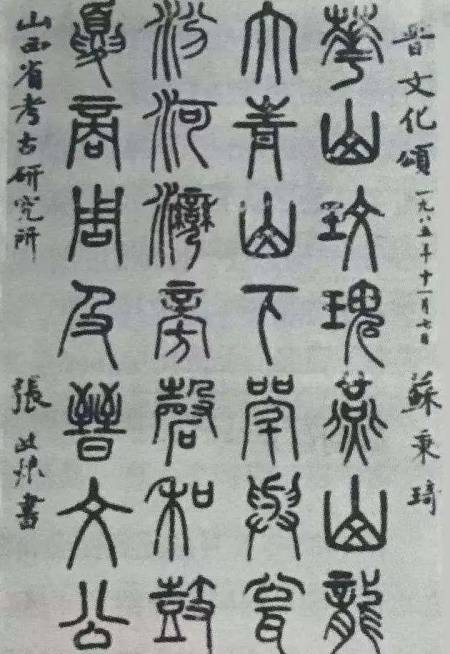 晋文化頌 一九八五年十一月七日 蘇秉琦
華山玫瑰燕山龍
大青山下斝與瓮
汾河灣旁磬和鼓
夏商周及晉文公
山西省考古研究所 張書